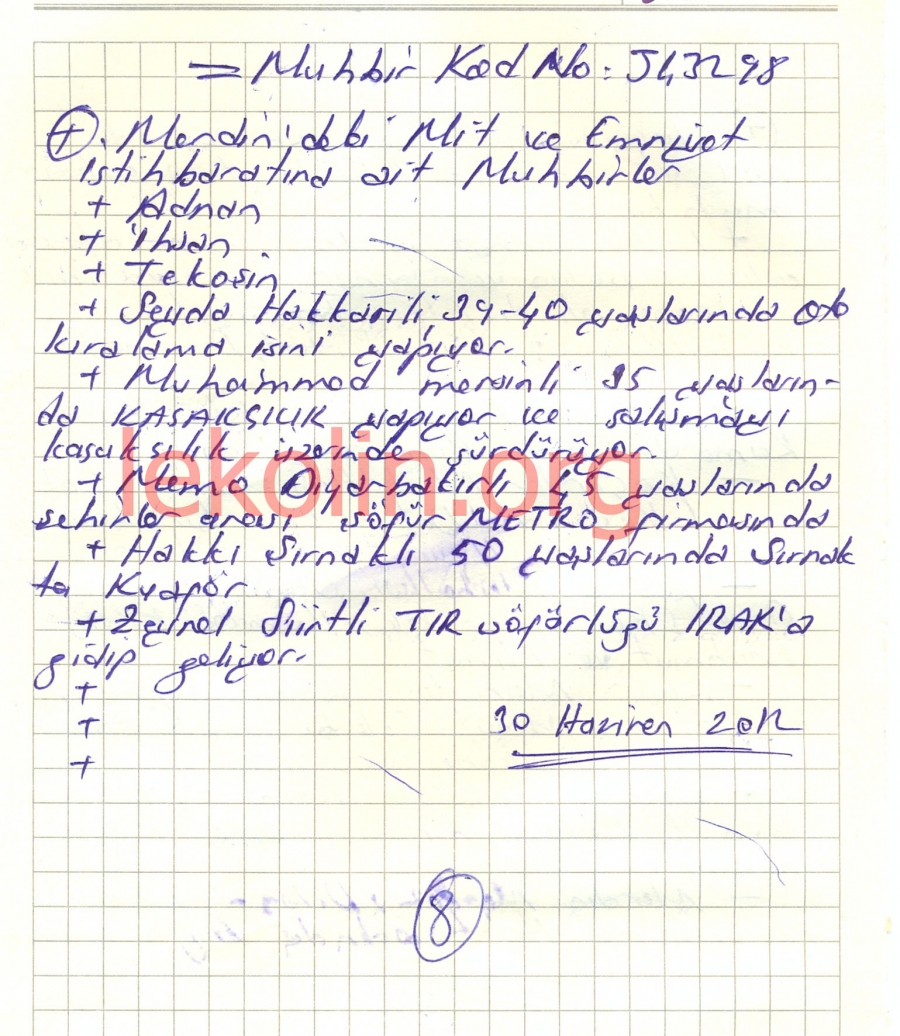 = Muhbir Kod No: J43298
+. Merdin'deki Mit ve Emniyet
istihbaratına ait Muhbirler
+ Adnan
+ İhsan
+ Tekoşin
+ Seyda Hakkarili 39-40 yaşlarında oto
kıralama işini yapıyor.
+ Muhammed mersinli 35 yaşların-
da KAÇAKÇILIK yapıyor ve çalışmayı
kaçakçılık üzerinde sürdürüyor.
lekolin.org
+ Memo Diyarbakırlı 45 yaşlarında
şehirler arası şöfür METRO firmasında
+ Hakkı Şırnaklı 50 yaşlarında Şırnak
ta
+ Zeynel Siirtli TIR şöförlüğü IRAK'a
gidip geliyor.
+
+
30 Haziren 2012
+
8